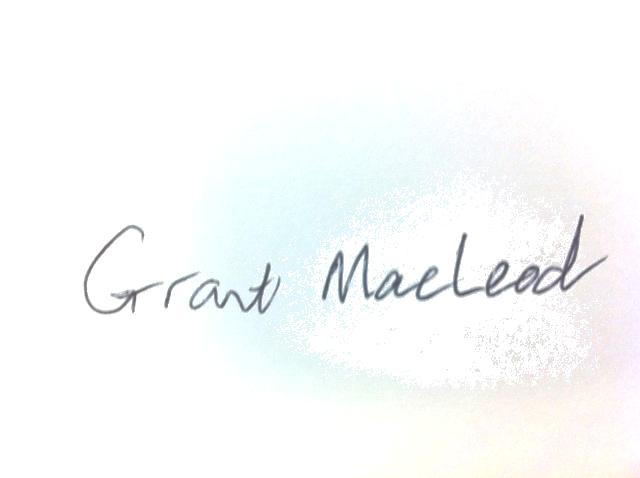 Grant MacLeod